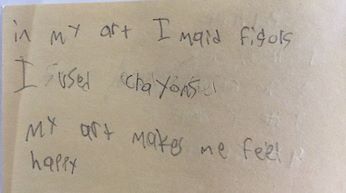 in my art I maid figols
I used crayons
my art makes me feel
happy